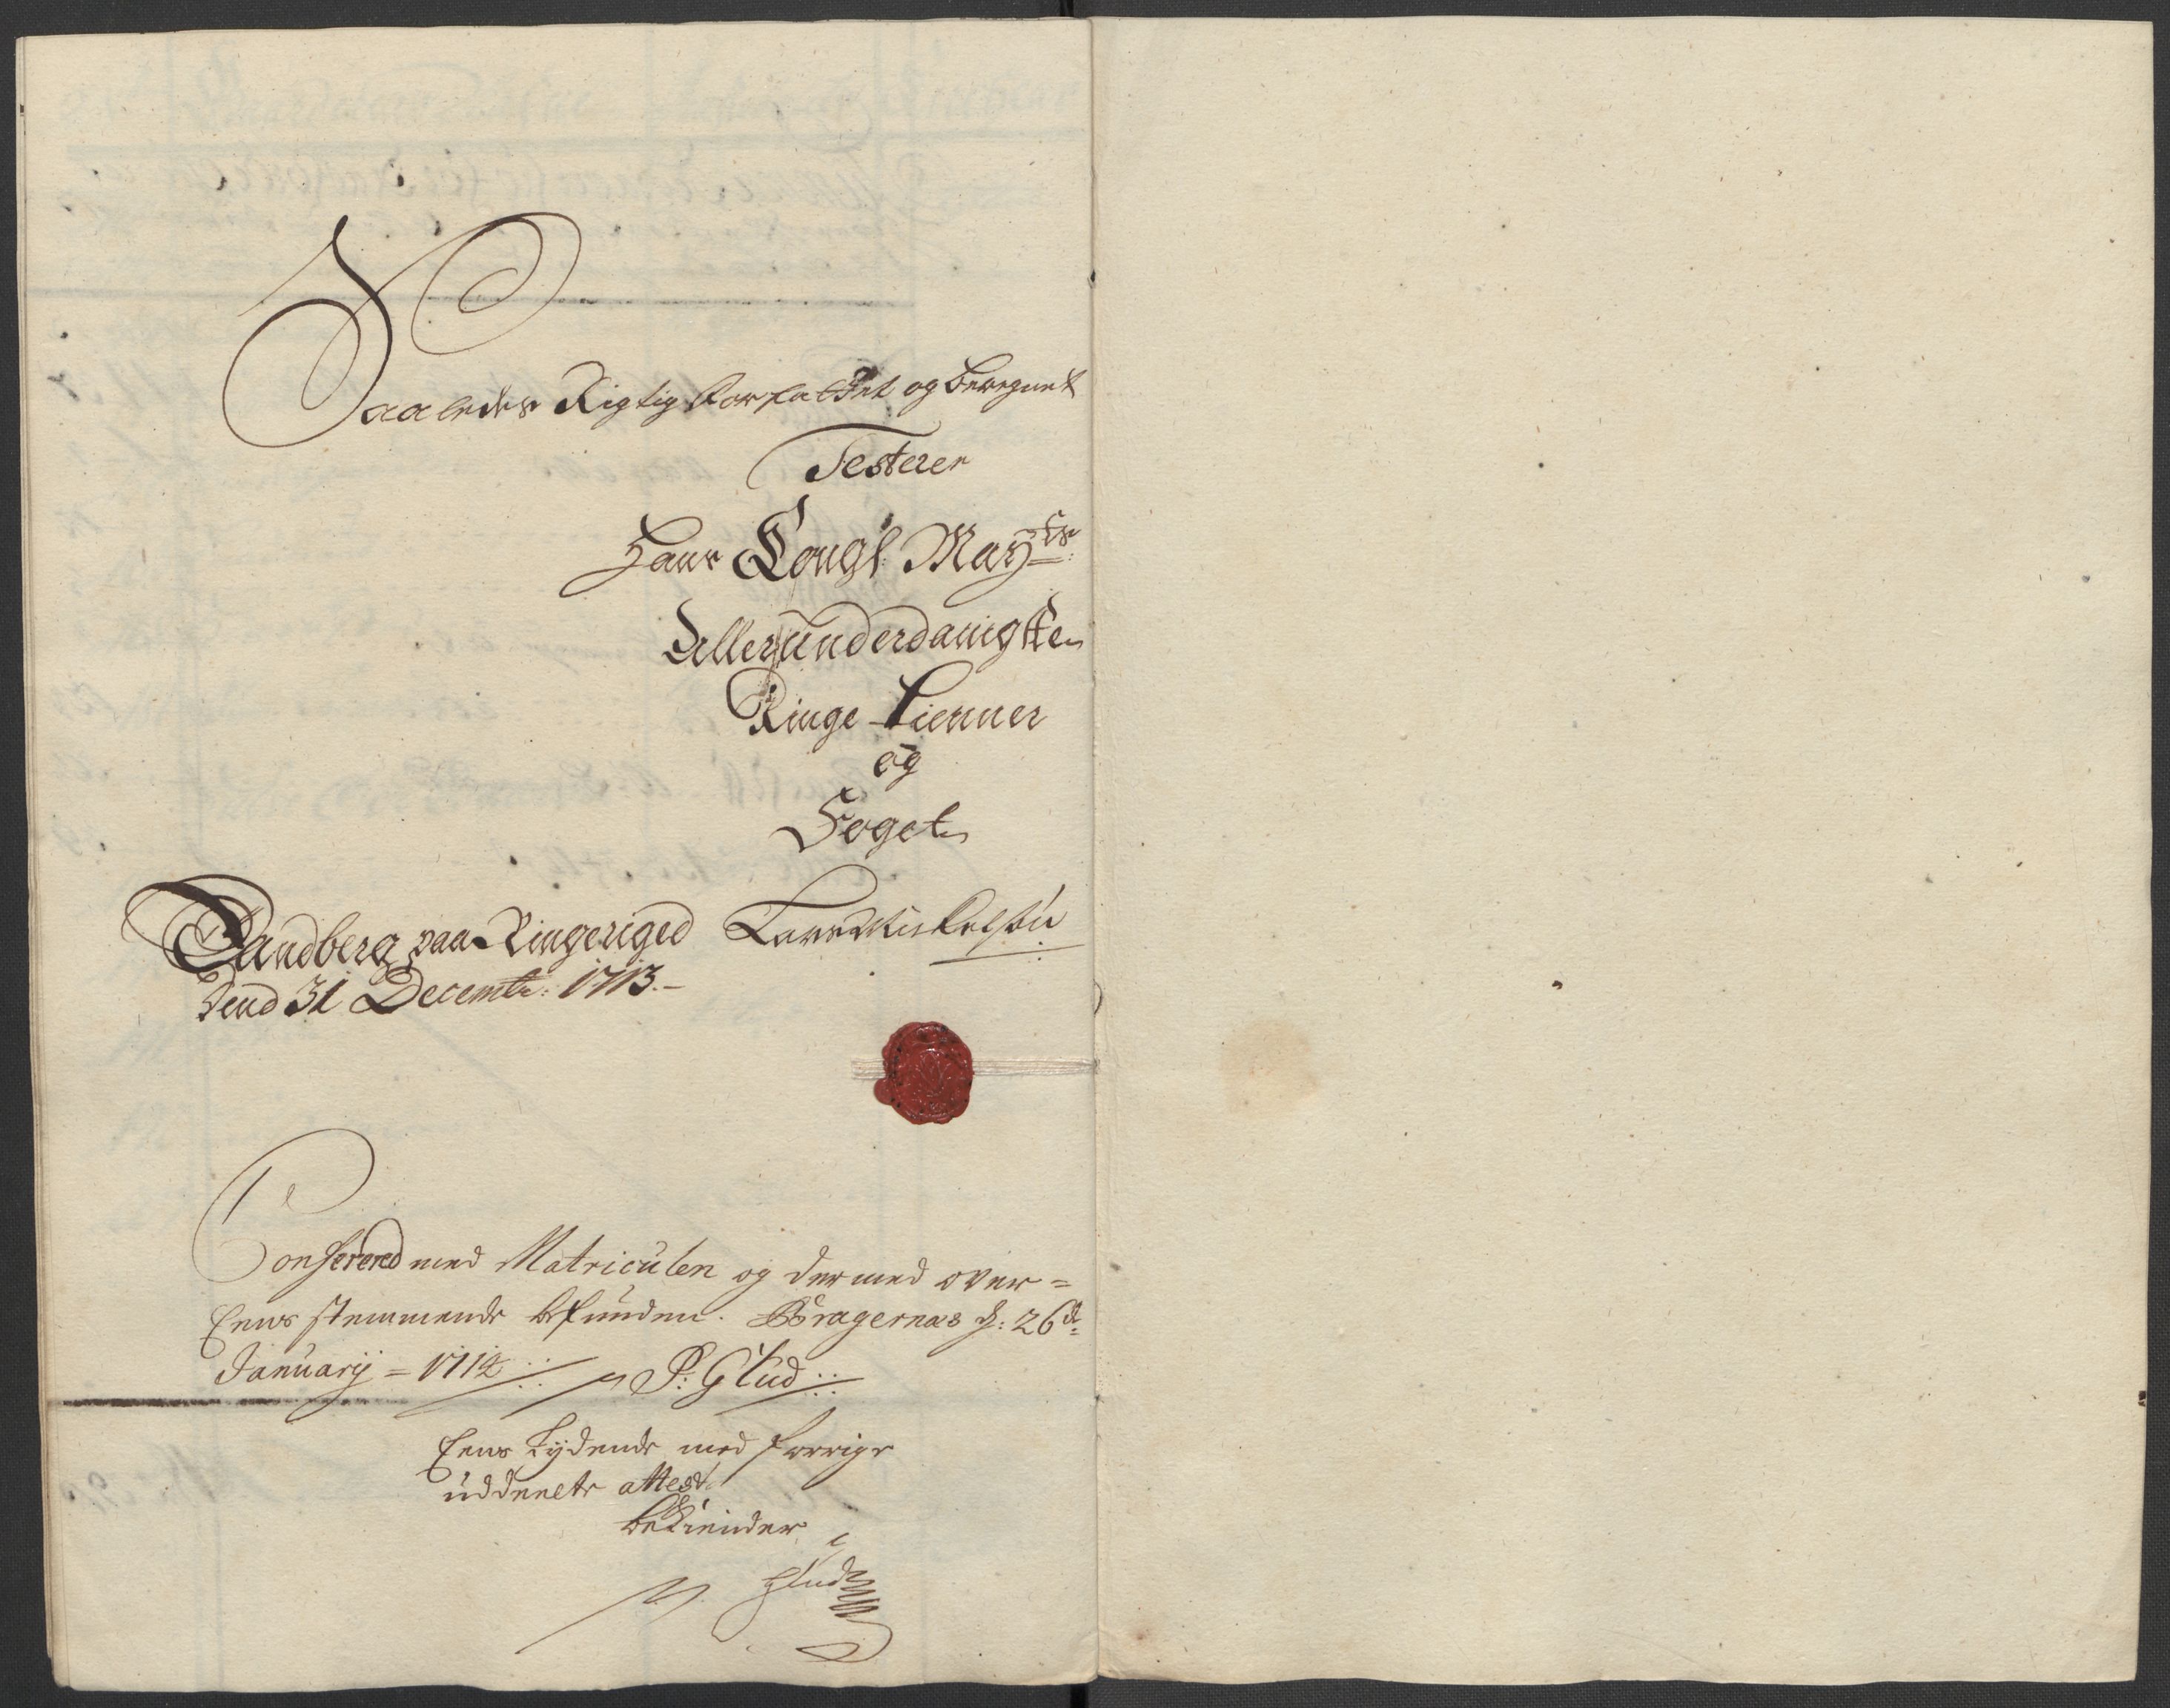 Saaledes Rigtig forfattet og beregnet
Testerer
Hans Kongl: May:ts
Allerunderdanigste
Ringe Tienner
og
Foget
Sandberg paa Ringeriged Lars Mickelsøn
dend 31 Decembr: 1713.-
Conferered med Matriculen og dermed over=
Eens stemmende befunden. Bragernæs d: 26de
Januarij = 1714 P: Glud
Eens Lydende med forrige
uddeelte attest
bekiender
P. Glud